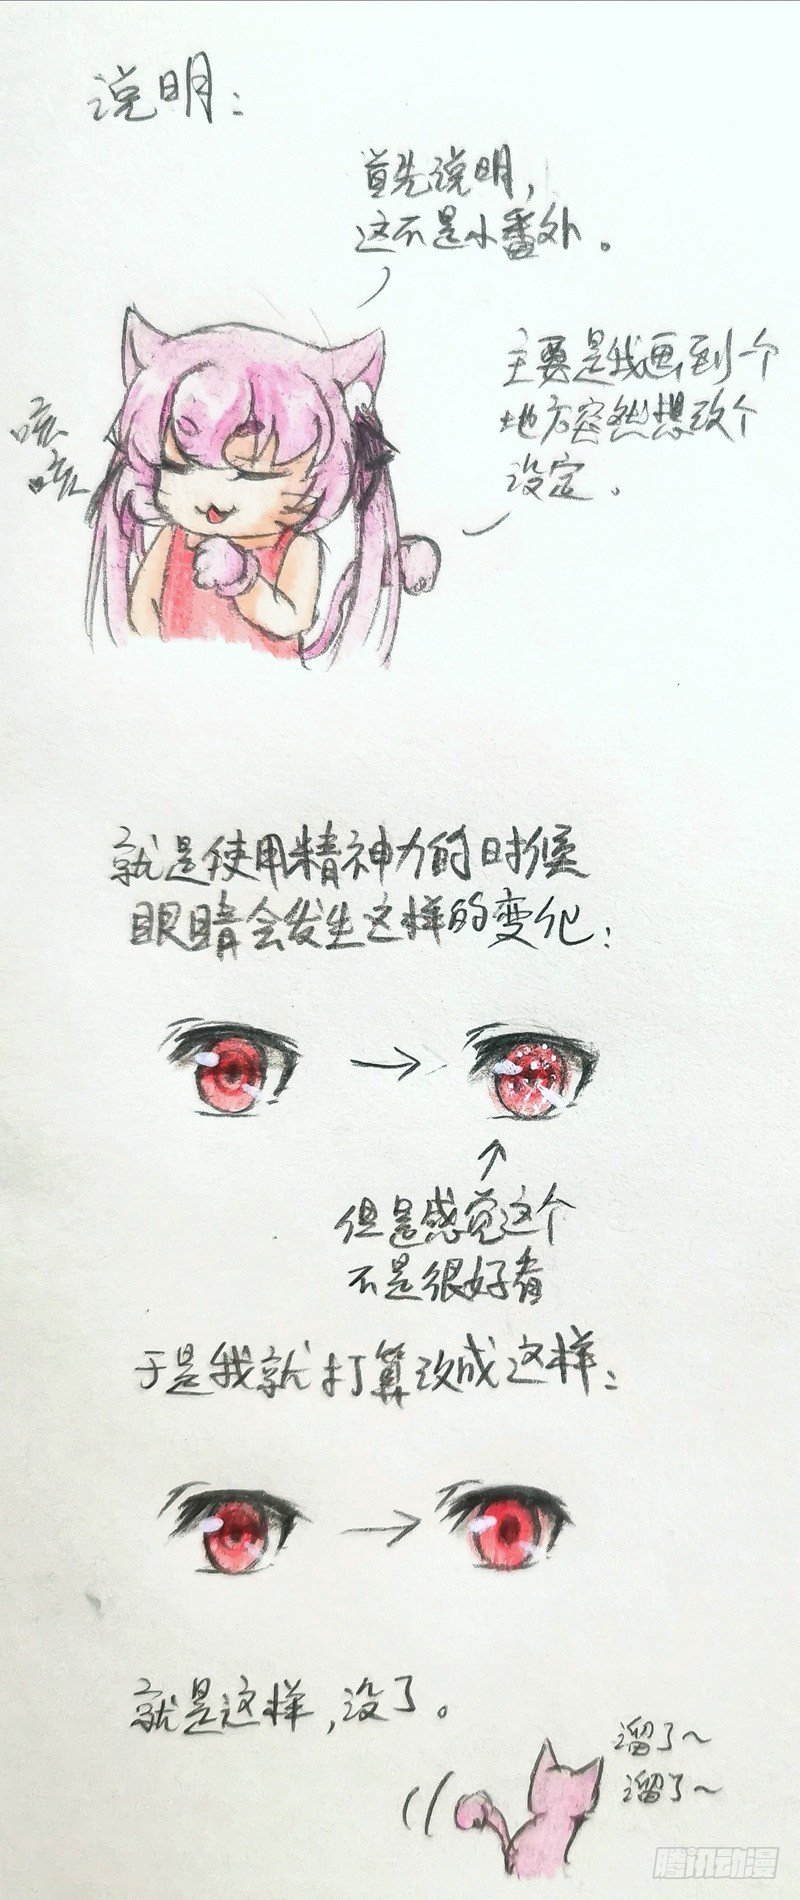 说明：
首先说明，
这不是小番外。
主要是我画到个
地方突然想改个
设定。
咳
咳
就是使用精神力的时候
眼睛会发生这样的变化：
但是感觉这个
不是很好看
于是我就打算改成这样：
就是这样，没了。
溜了~
溜了~
腾讯动漫